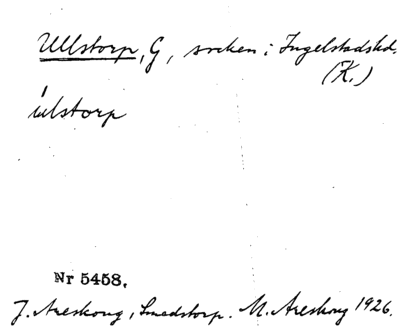 Ullstorp, G, socken i Ingelstads hd.
(K.)
úlstorp
Nr 5458.
J. Areskoug, Smedstorp. M. Areskoug 1926.